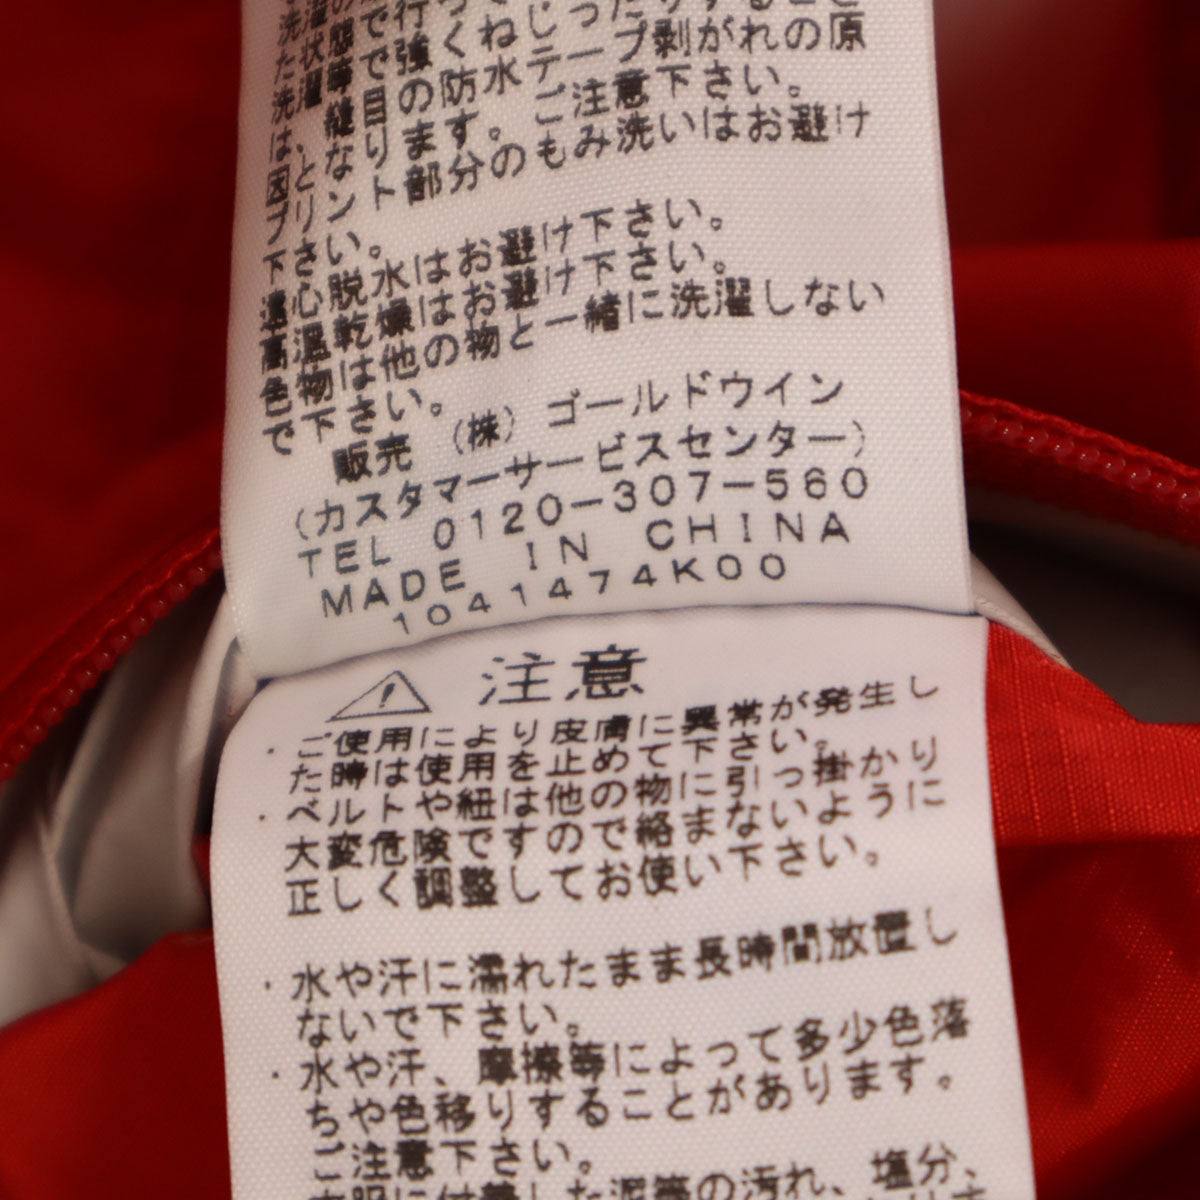 た状態で強くねじったりすると
洗濯等で縫目の防水テープ剥がれの原
は、となります。ご注意下さい。
プリント部分のもみ洗いはお避け
下さい。
遠心脱水はお避け下さい。
高温乾燥はお避け下さい。
色物は他の物と一緒に洗濯しない
で下さい。
販売 (株) ゴールドウイン
(カスタマーサービスセンター)
TEL 0120-307-560
MADE IN CHINA
1041474K00
注意
・ご使用により皮膚に異常が発生し
た時は使用を止めて下さい。
・ベルトや紐は他の物に引っ掛かり
大変危険ですので絡まないように
正しく調整してお使い下さい。
・水や汗に濡れたまま長時間放置し
ないで下さい。
・水や汗、摩擦等によって多少色落
ちや色移りすることがあります。
ご注意下さい。
衣服に付着した泥等の汚れ、塩分、